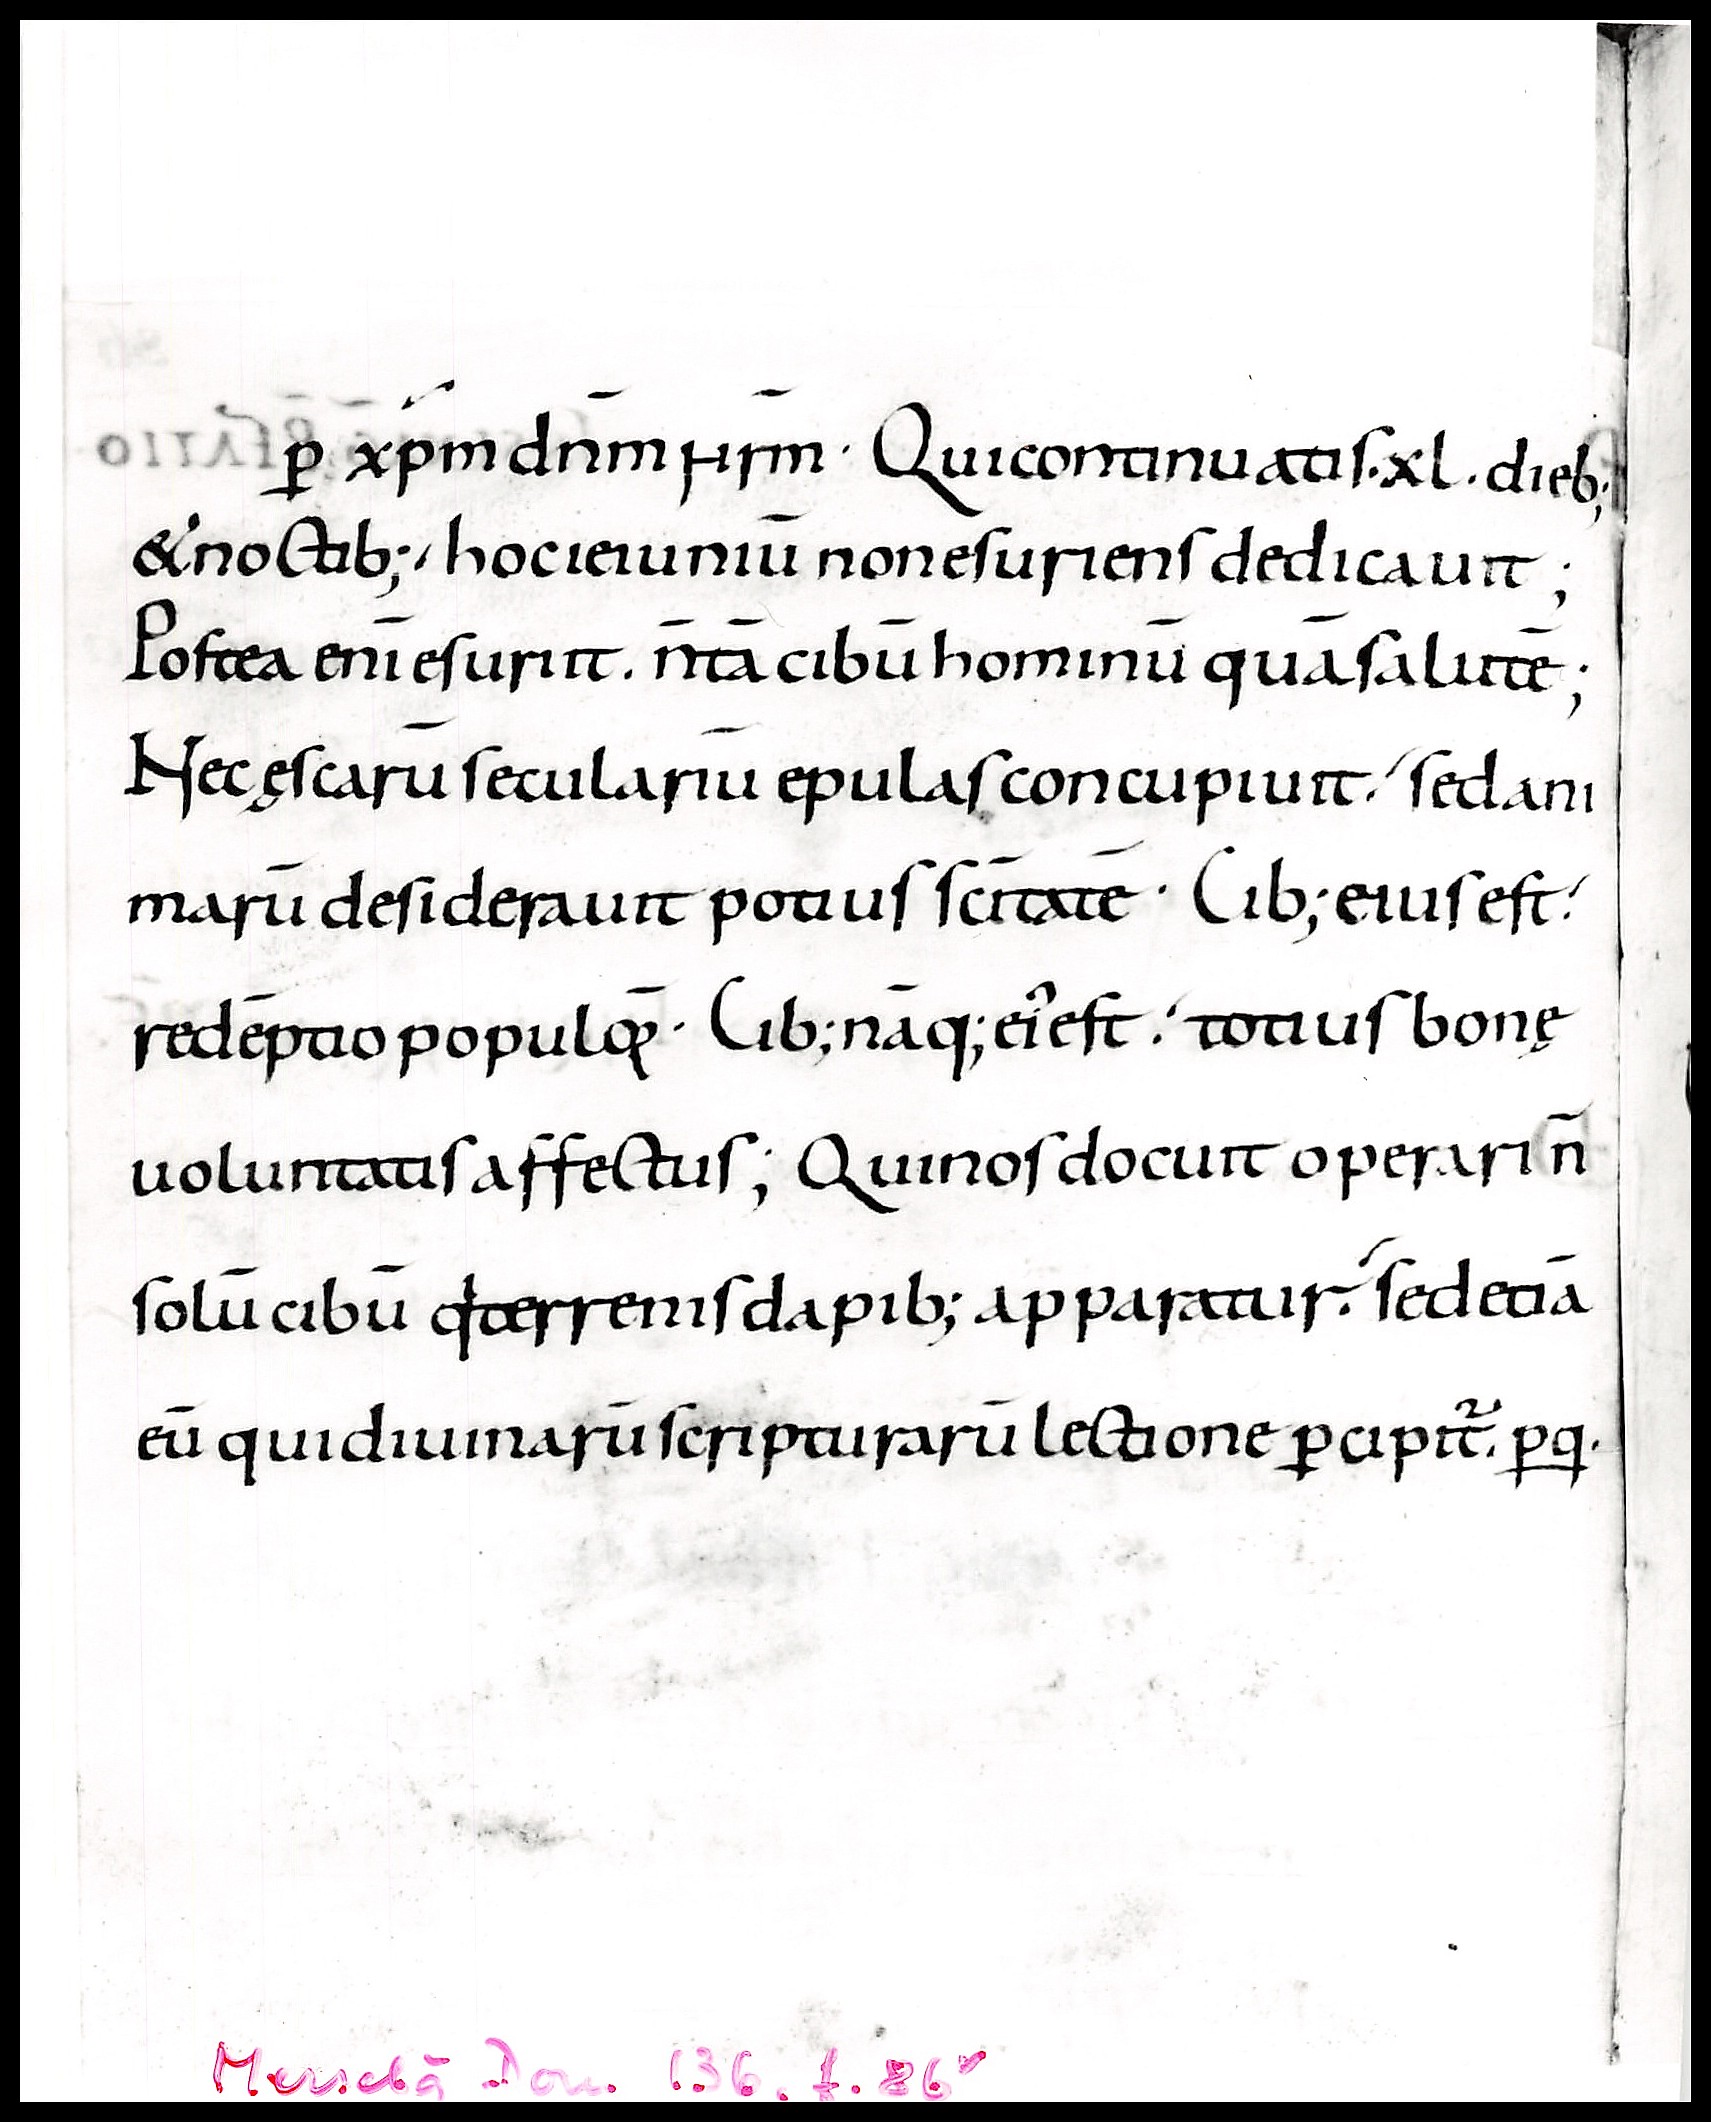 p̱ xp̄m dn̄m nr̄m · Qui continuatis · xl · dieb;
& noctib; hoc ieiuniū non esuriens dedicauit ;
Postea enī esuriit . n̄ tā cibū hominū quā salutē ;
Nec ęscarū seculariū epulas concupiuit : sed ani
marū desiderauit potius scītatē · Cib; eius est :
redēptio populoꝝ · Cib; nāq; ei᷒ est : totius bonę
uoluntatis affectus ; Qui nos docuit operari n̄
solū cibū q̇ terrenis dapib; apparatur : sed etiā
eū qui diuinarū scripturarū lectione ꝑcipit᷑ . ꝑ q .
136 . f . 86ᵛ